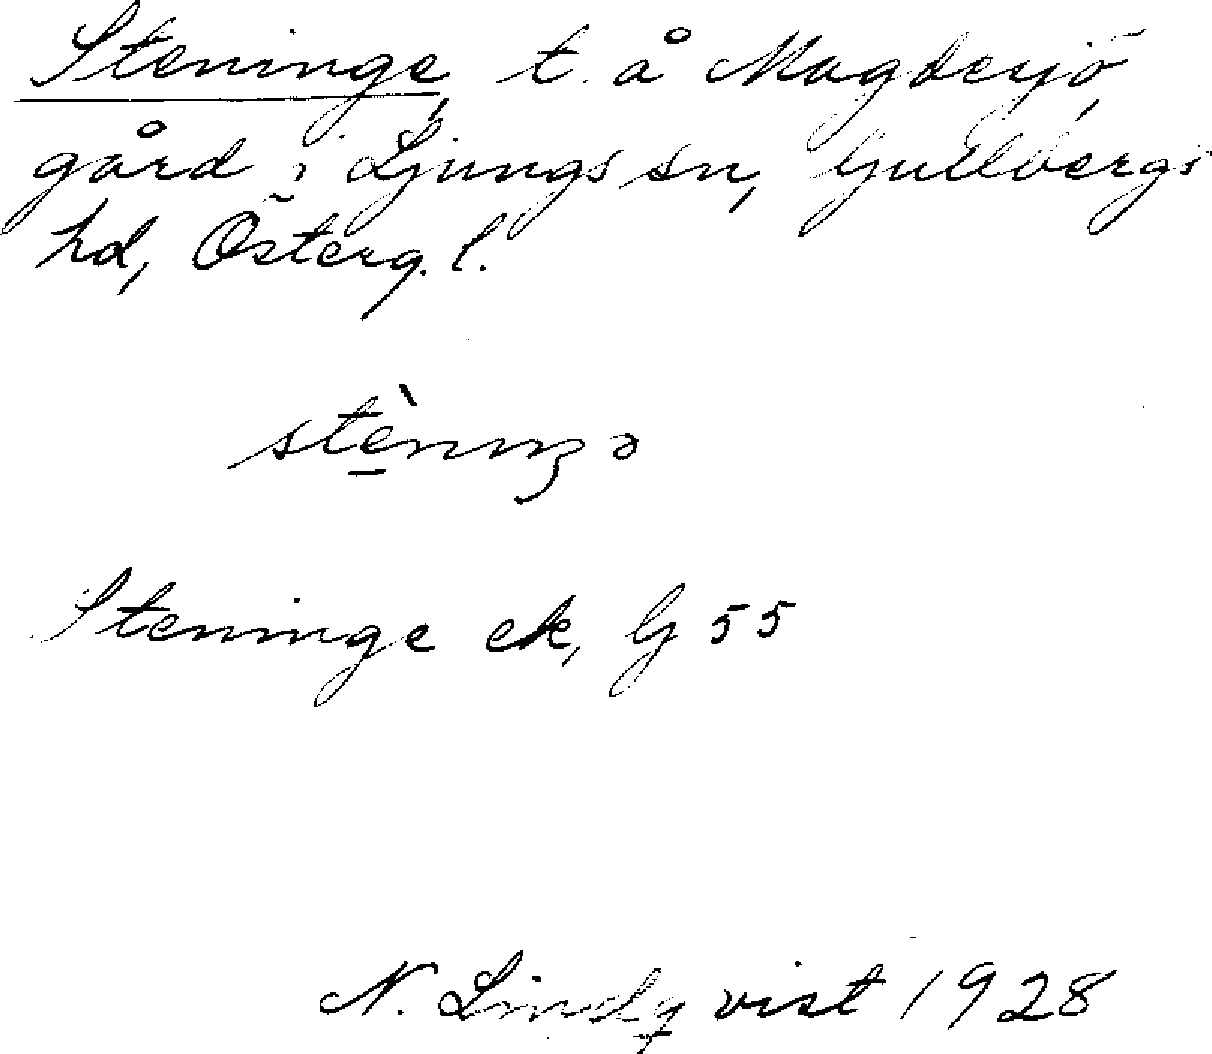 Steninge, t. å Magdesjö,
gård i Ljungs sn, Gullbergs
hd, Österg. l.
stè̠nıŋə
Steninge ek, G 55
N. Lindqvist 1928